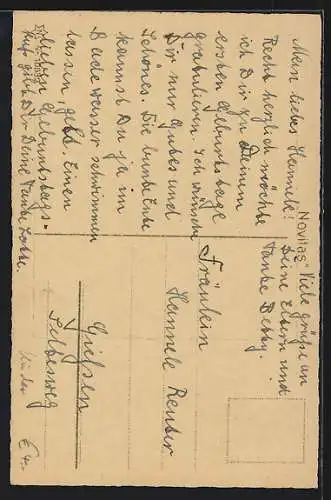 Mein liebes Hannele!
Recht herzlich möchte
ich Dir zu Deinem
ersten Geburtstage
gratulieren. Ich wünsche
Dir nur Gutes und
Schönes. Die bunte Ente
kannst Du ja im
Badewasser schwimmen
lassen, gelb. Einen
lieben Geburtstags-
kuß gibt Dir Deine Tante
Viele Grüße an
Deine Eltern und
Tante Betty.
"Novitas"
Fräulein
Hannele Reuter
Gießen
Kinder
€ 4.-